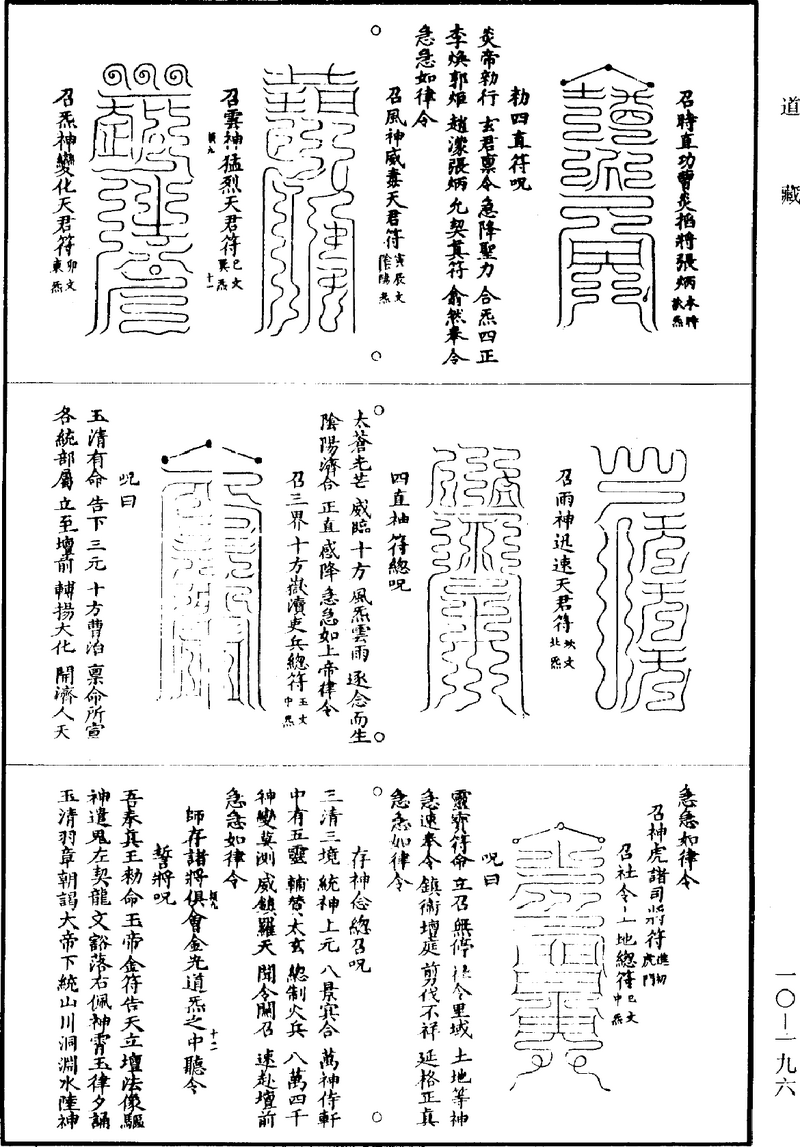 道藏
召時直功曹炎㨪將張炳本時歘炁
勑四直符呪
炎帝勑行 玄君禀令 急降聖力 合炁四正
李煥郭炬 趙濛張炳 允契真符 翕然奉令
急急如律令
召風神威毒天君符寅辰文陰陽炁
召雲神猛烈天君符巳文巽炁
召炁神變化天君符卯文東炁
召雨神迅速天君符坎文北炁
四直神符總呪
太蒼光芒 威臨十方 風炁雲雨 逐念而生
陰陽濟合 正直感降 急急如上帝律令
召三界十方嶽瀆吏兵總符玉文中炁
呪曰
玉清有命 告下三元 十方曹治 禀命所宣
各統部屬 立至壇前 輔揚大化 開濟人天
急急如律令
召神虎諸司將符
召社令土地總符巳文中炁
呪曰
靈寶符命 立召無停 社令里域 土地等神
急速奉令 鎮衛壇庭 剪伐不祥 延格正真
急急如律令
存神念總召呪
三清三境 統神上元 八景賓合 萬神侍軒
中有五靈 輔贊太玄 總制火兵 八萬四千
神變莫測 威鎮羅天 聞令關召 速赴壇前
急急如律令
師存諸將俱會金光道炁之中聽令
誓將呪
吾奉真王勑命玉帝金符告天立壇法像驅
神遣鬼左契龍文豁落右佩神霄玉律夕誦
玉清羽章朝謁大帝下統山川洞淵水陸神
一〇—一九六